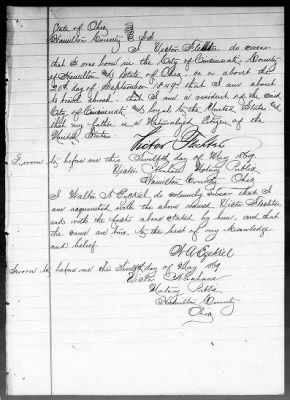 State of Ohio
Hamilton County } SS
I Victor Flechter do swear
that I was born in the City of Cincinnati County
of Hamilton and State of Ohio, on or about the
20th day of September 1849, that I am about
to travel abroad. that I am a resident of the said
City of Cincinnati and loyal to the United States and
that my father is a Naturalized Citizen of the
United States
Victor Flechter
Sworn to before me this Twelfth day of May 1869.
Victor Abraham Notary Public
Hamilton County Ohio
I Walter A Ezekiel do solemnly swear that I
am acquainted with the above named Victor Flechter
and with the facts above stated by him, and that
the same are true to the best of my knowledge
and belief.
W A Ezekiel
Sworn to before me this Twelfth day of May 69
Victor Abraham
Notary Public
Hamilton County
Ohio